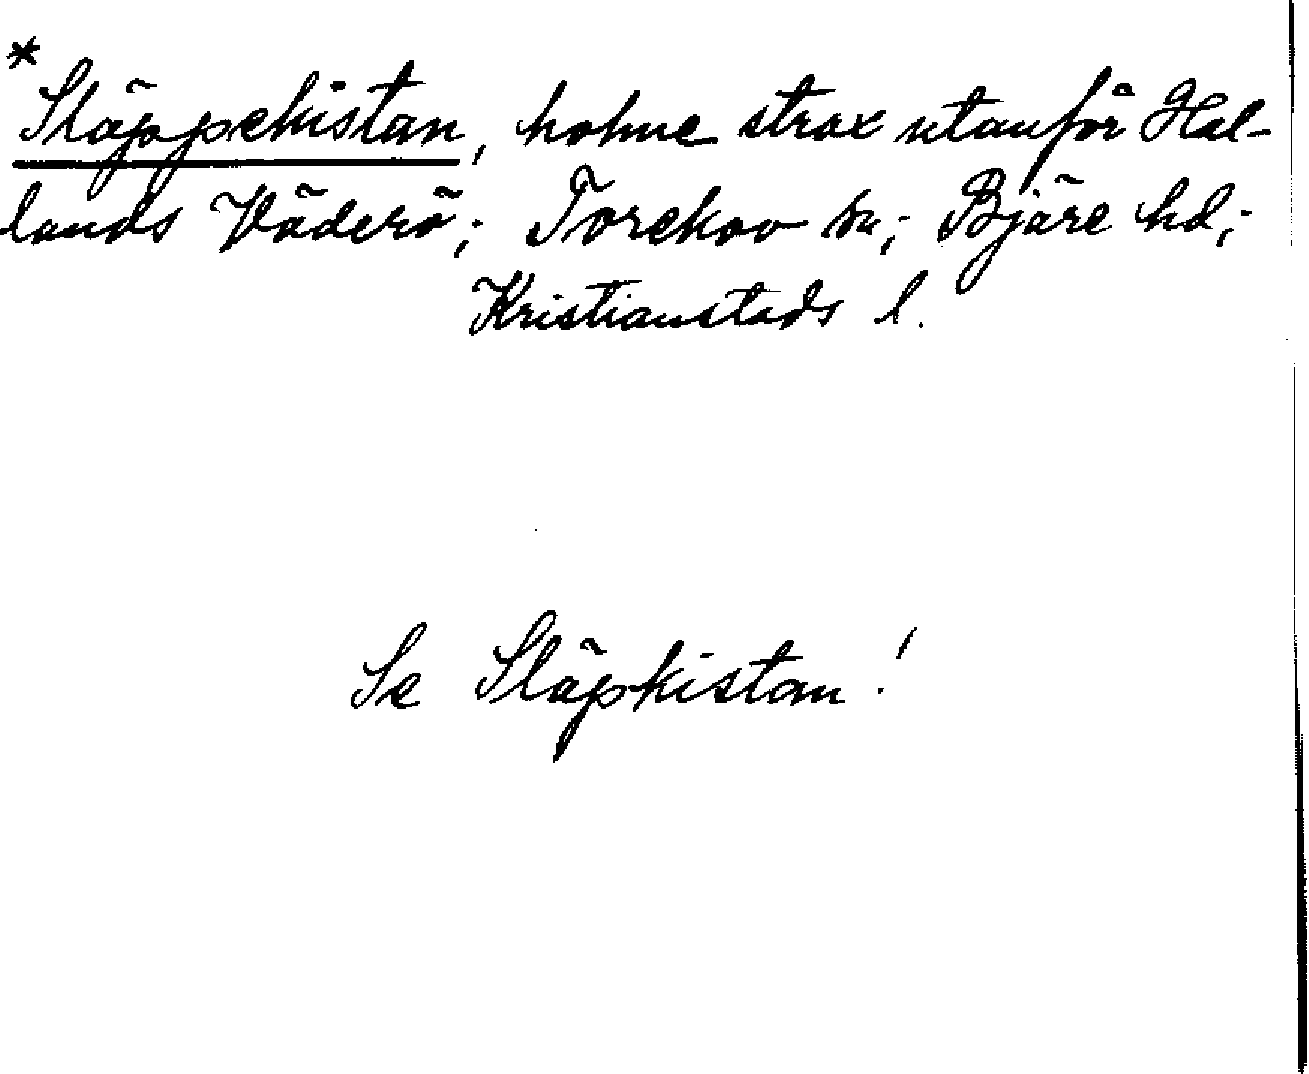 *
Släppekistan, holme strax utanför Hal-
lands Väderö; Torekov sn; Bjäre hd;
Kristianstads l.
Se Släpkistan!